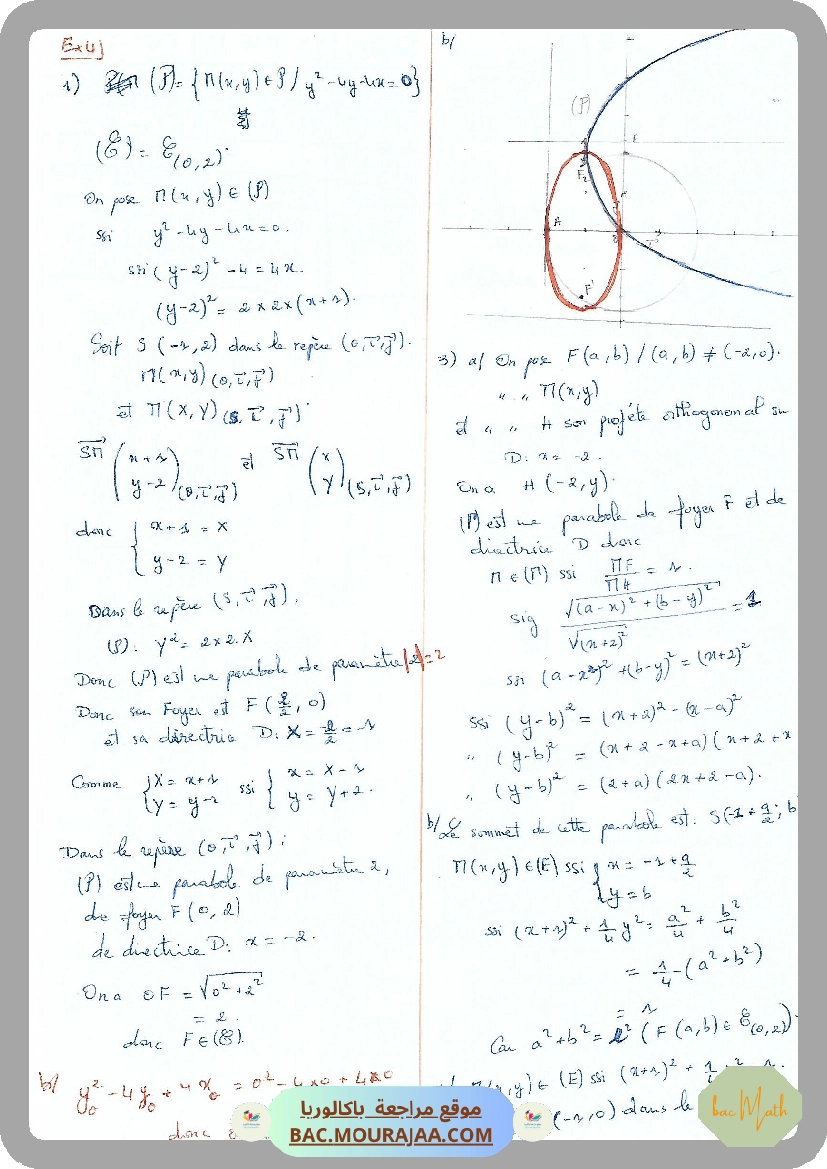 Ex4)
1) (P) = { M(x,y) ∈ P / y² - 4y - 4x = 0 }
(ℰ) = ℰ(0,2).
On pose M(x,y) ∈ (P)
ssi y² - 4y - 4x = 0.
ssi (y-2)² - 4 = 4x.
(y-2)² = 2×2×(x+1).
Soit S(-1,2) dans le repère (O,i⃗,j⃗).
M(x,y) (O,i⃗,j⃗)
et M(X,Y) (S,i⃗,j⃗).
SM⃗ (x+1 y-2) (O,i⃗,j⃗) et SM⃗ (X Y) (S,i⃗,j⃗)
donc { x+1 = X
y-2 = Y
Dans le repère (S,i⃗,j⃗),
(P): Y² = 2×2.X
Donc (P) est une parabole de paramètre |2|=2
Donc son Foyer est F(2/2, 0)
et sa directrice D: X = -2/2 = -1
Comme { X = x+1 ssi { x = X-1
Y = y-2 y = Y+2.
Dans le repère (O,i⃗,j⃗):
(P) est une parabole de paramètre 2,
de foyer F(0,2)
de directrice D: x = -2.
On a OF = √0²+2²
= 2.
donc F∈(ℰ).
b/ y₀² - 4y₀ + 4x₀ = 0² - 4×0 + 4×0
donc
b/
(P)
E
F₂
F
A
B
F'
3) a/ On pose F(a,b) / (a,b) ≠ (-2,0).
" " M(x,y)
et " " H son projeté orthogonal sur
D: x = -2.
On a H(-2,y).
(P) est une parabole de foyer F et de
directrice D donc
M∈(P) ssi MF/MH = 1.
sig √(a-x)²+(b-y)² / √(x+2)² = 1
ssi (a-x)² + (b-y)² = (x+2)²
ssi (y-b)² = (x+2)² - (x-a)²
" (y-b)² = (x+2-x+a)(x+2+x
" (y-b)² = (2+a)(2x+2-a).
b/ Le sommet de cette parabole est: S(-1+a/2; b
M(x,y)∈(E) ssi { x = -1+a/2
y = b
ssi (x+1)² + 1/4 y² = a²/4 + b²/4
= 1/4 (a²+b²)
= 1
Car a²+b² = 2² (F(a,b)∈ℰ(0,2)).
M(x,y)∈(E) ssi (x+1)² +
(-1,0) dans le
موقع مراجعة باكالوريا
BAC.MOURAJAA.COM
bac Math